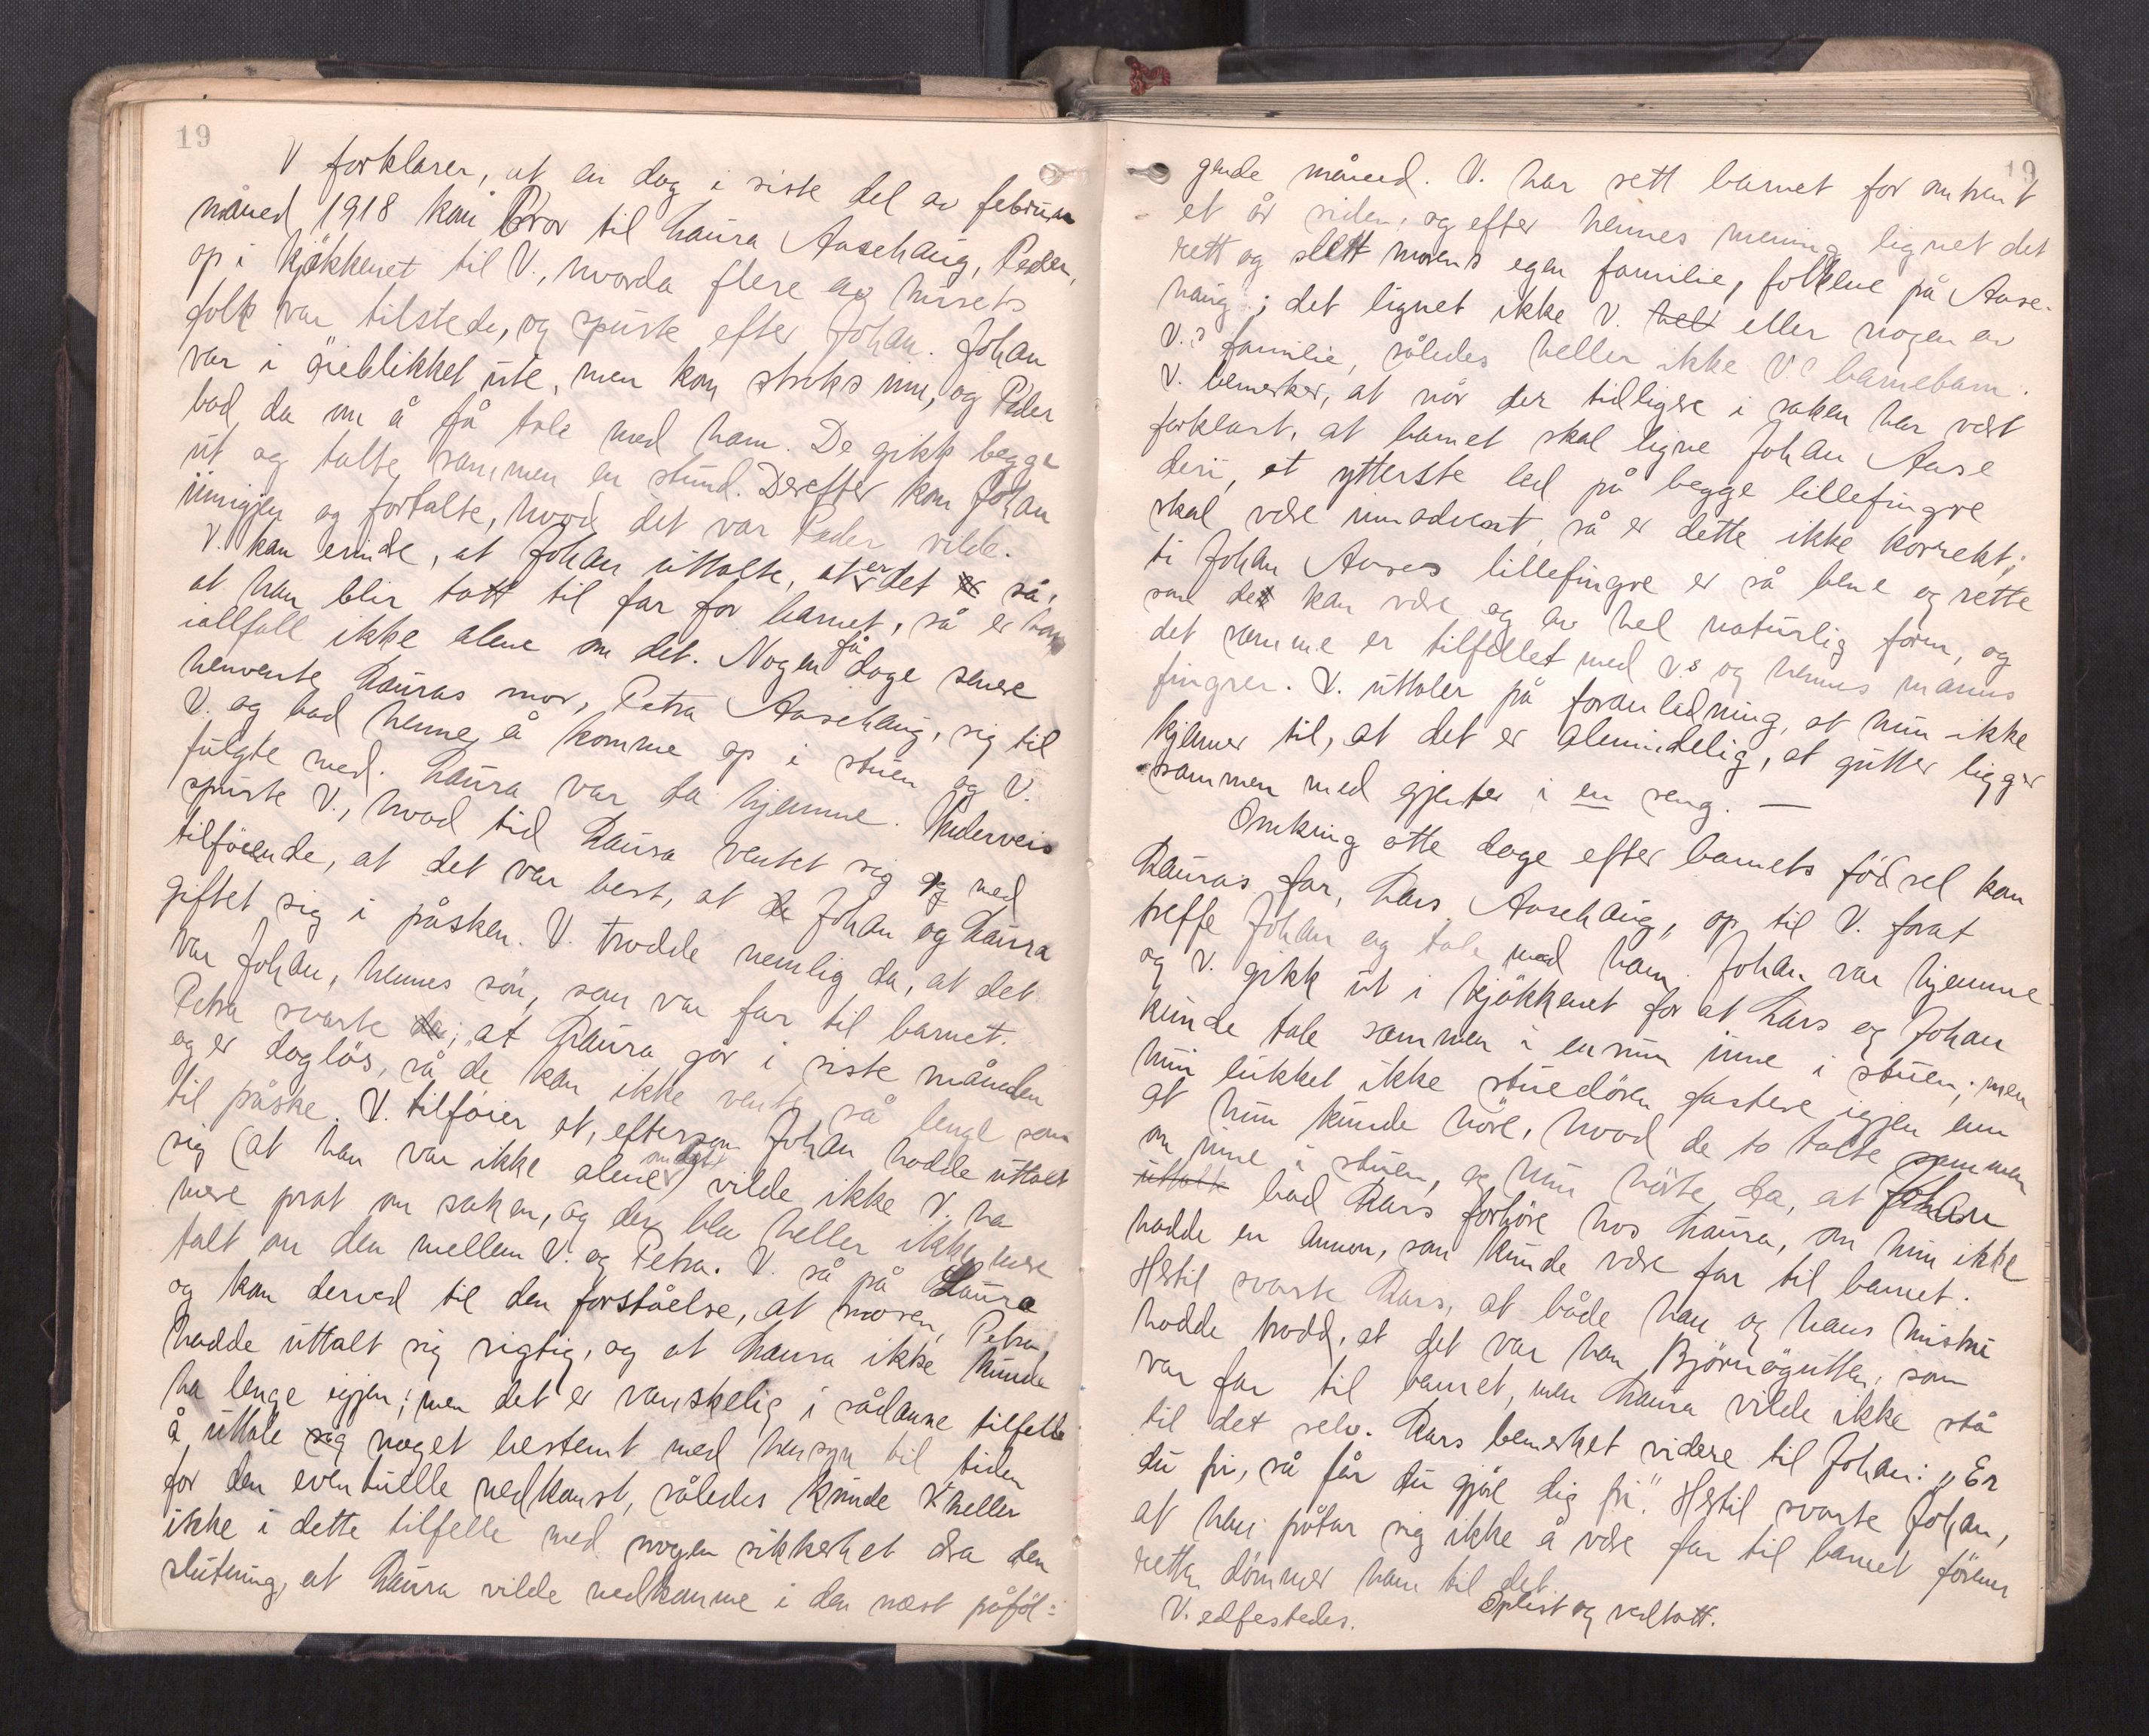 19
V forklarer, at en dag i siste del av februar
måned 1918 kom bror til Laura Aasehaug, Peder,
op i kjøkkenet til V., hvorda flere av husets
folk var tilstede, og spurte efter Johan. Johan
var i øieblikket ute, men kom straks inn, og Peder
bad da om å få tale med ham. De gikk begge
ut og talte sammen en stund. Derefter kom Johan
innigjen og fortalte, hvad det var Peder vilde.
V. kan erindre, at Johan uttalte, at er det så,
at han blir tatt til far for barnet, så er han
iallfall ikke alene om det. Nogen få dage senere
henvente Lauras mor, Petra Aasehaug, sig til
V. og bad henne å komme op i stuen og V.
fulgte med. Laura var da hjemme. Underveis
spurte V., hvad tid Laura ventet sig og med
tilføiende, at det var best, at Johan og Laura
giftet sig i påsken. V. trodde nemlig da, at det
var Johan, hennes søn, som var far til barnet.
Petra svarte da, at Laura går i siste måneden
og er dagløs, så de kan ikke vente så lenge som
til påske. V. tilføier at, eftersom Johan hadde uttalt
sig (at han var ikke alene om det) vilde ikke V. ha
mere prat om saken, og der blev heller ikke mere
talt om den mellem V. og Petra. V. så på Laura
og kom derved til den forståelse, at moren, Petra,
hadde uttalt sig rigtig, og at Laura ikke kunde
ha lenge igjen; men det er vanskelig i sådanne tilfelle
å uttale sig noget bestemt med hensyn til tiden
for den eventuelle nedkomst, således kunde V heller
ikke i dette tilfelle med nogen sikkerhet dra den
slutning, at Laura vilde nedkomme i den næst påføl-
19
gende måned. V. har sett barnet for omtrent
et år siden, og efter hennes mening lignet det
rett og slett morens egen familie, folkene på Aase-
haug; det lignet ikke V. helt eller nogen av
V.s familie, således heller ikke V.s barnebarn.
V. bemerker, at når der tidligere i saken har vært
forklart, at barnet skal ligne Johan Aase
deri, at ytterste led på begge lillefingre
skal være innadvent, så er dette ikke korrekt;
ti Johan Aases lillefingre er så bene og rette
som det kan være og av hel naturlig form, og
det samme er tilfellet med V.s og hennes manns
fingrer. V. uttaler på foranledning, at hun ikke
kjenner til, at det er alemindelig, at gutter ligger
sammen med gjenter i en seng. —
Omkring otte dage efter barnets fødsel kom
Lauras far, Lars Aasehaug, op til V. forat
treffe Johan og tale med ham. Johan var hjemme
og V. gikk ut i kjøkkenet for at Lars og Johan
kunde tale sammen i enrum inne i stuen; men
hun lukket ikke stuedøren fastere igjen enn
at hun kunde høre, hvad de to talte sammen
om inne i stuen, og hun hørte da, at Johan
uttalt bad Lars forhøre hos Laura, om hun ikke
hadde en annen, som kunde være far til barnet.
Hertil svarte Lars, at både han og hans hustru
hadde trodd, at det var han Bjørnøgutten, som
var far til barnet, men Laura vilde ikke stå
til det selv. Lars bemerket videre til Johan: „Er
du fri, så får du gjøre dig fri." Hertil svarte Johan,
at han påtar sig ikke å være far til barnet førenn
retten dømmer ham til det.
V. edfestedes. Oplest og vedtatt.